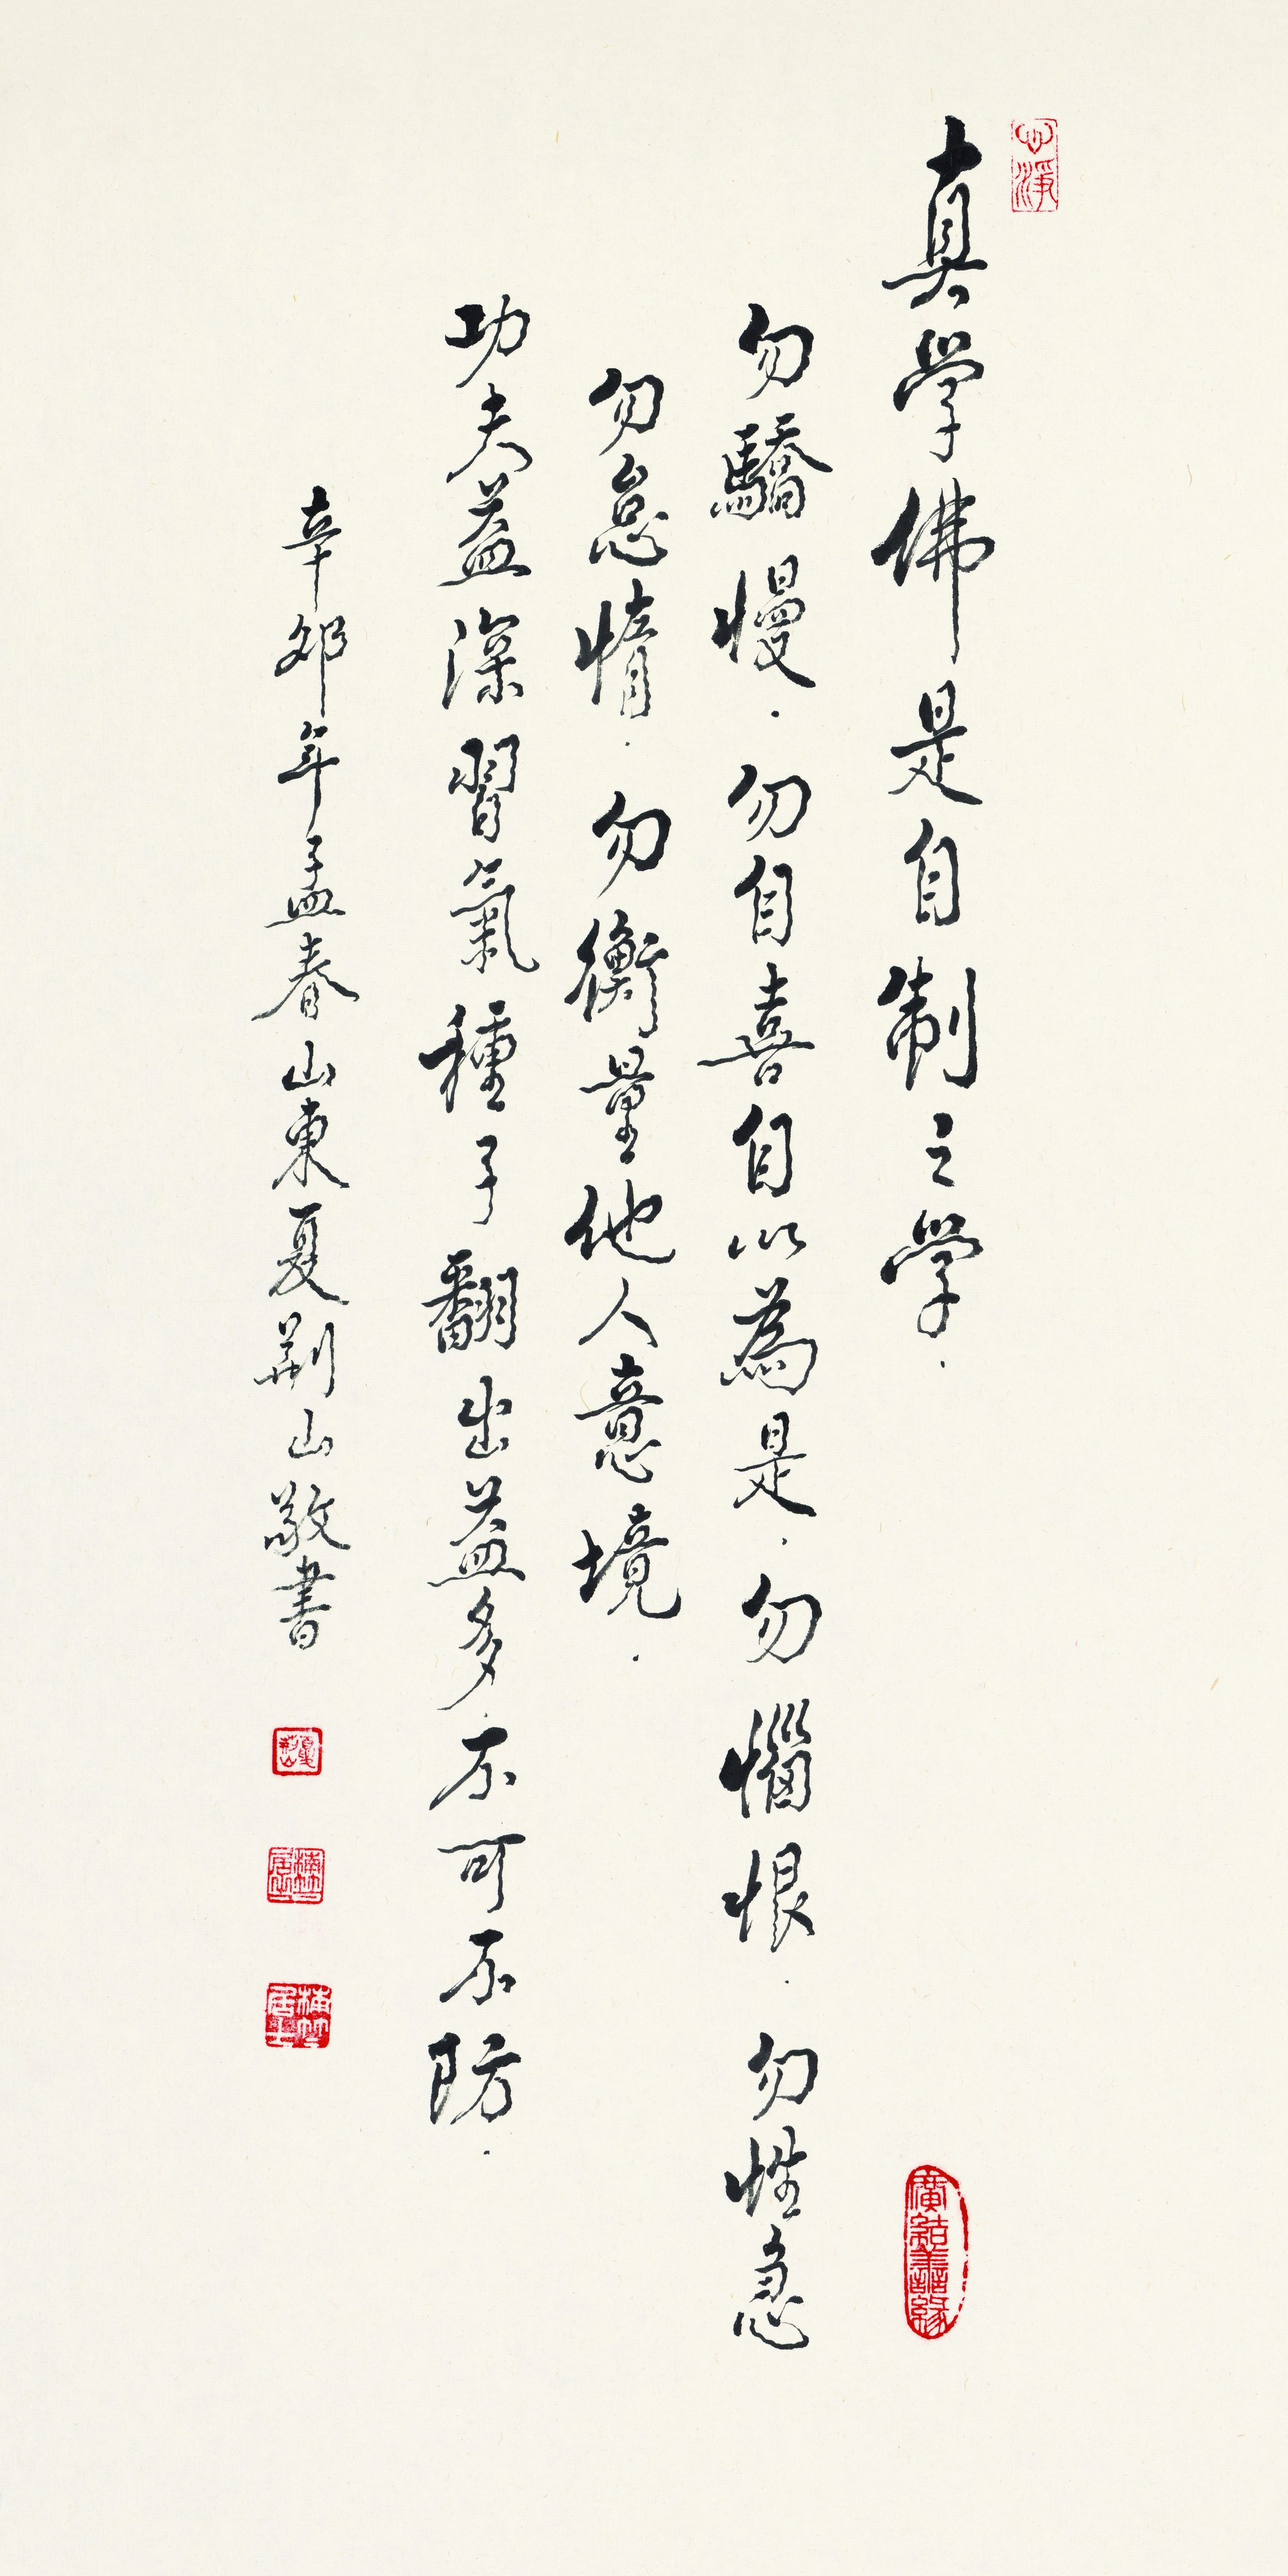 心淨
真學佛是自制之學．
勿驕慢．勿自喜自以為是．勿惱恨．勿性急
勿怠惰．勿衡量他人意境．
功夫益深習氣種子翻出益多不可不防．
辛卯年孟春山東夏荊山敬書
廣結善緣